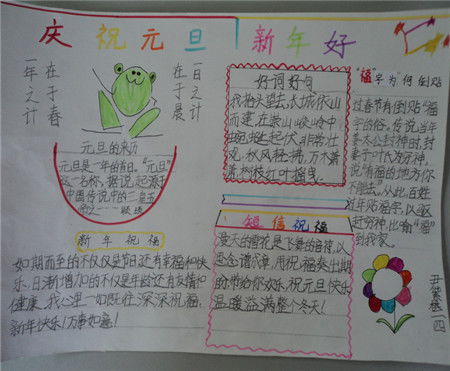 庆祝元旦
新年好
一年之计
在于春
一日之计
在于晨
元旦的来历
元旦是一年的首日。"元旦"
这一名称,据说起源于
中国传说中的三皇五
帝之一——颛顼
新年祝福
如期而至的不仅仅是节日还有幸福和快
乐,日渐增加的不仅是年龄还有友情和
健康,我心里一如既往深深祝福,
新年快乐!万事如意!
好词好句
我抬头望去,长城依山
而建,在崇山峻岭中
蜿蜒起伏,非常壮
观,秋风
短信祝福
漫天的雪花是飞舞的音符,以
思念谱穴章,用祝福奏出期
的带给你欢乐,祝元旦快乐
温暖溢满整个冬天!
"福"字为何倒贴
过春节有倒贴"福"
字的俗。传说,当年
姜太公封神时,封
妻子叶氏为穷神,
说:"有福的地方你
不能去。"从此百姓
过年贴福字,以驱
赶穷神,
到我家。